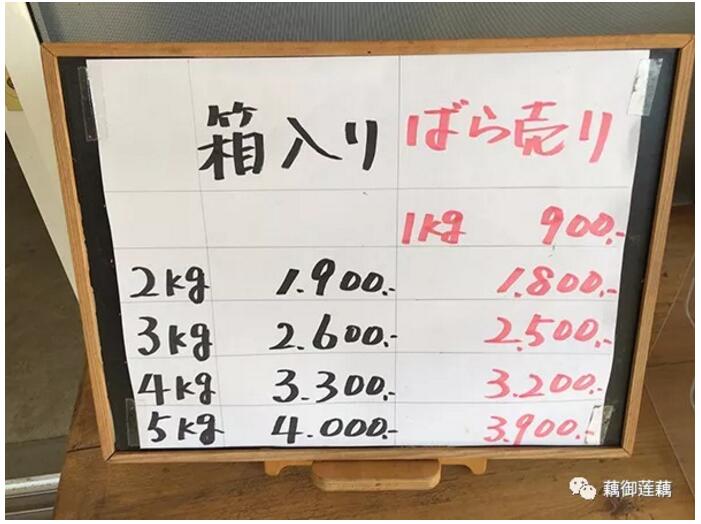 箱入り ばら売り
1kg 900.-
2kg 1.900.- 1.800.-
3kg 2.600.- 2.500.-
4kg 3.300.- 3.200.-
5kg 4.000.- 3.900.-
藕御莲藕